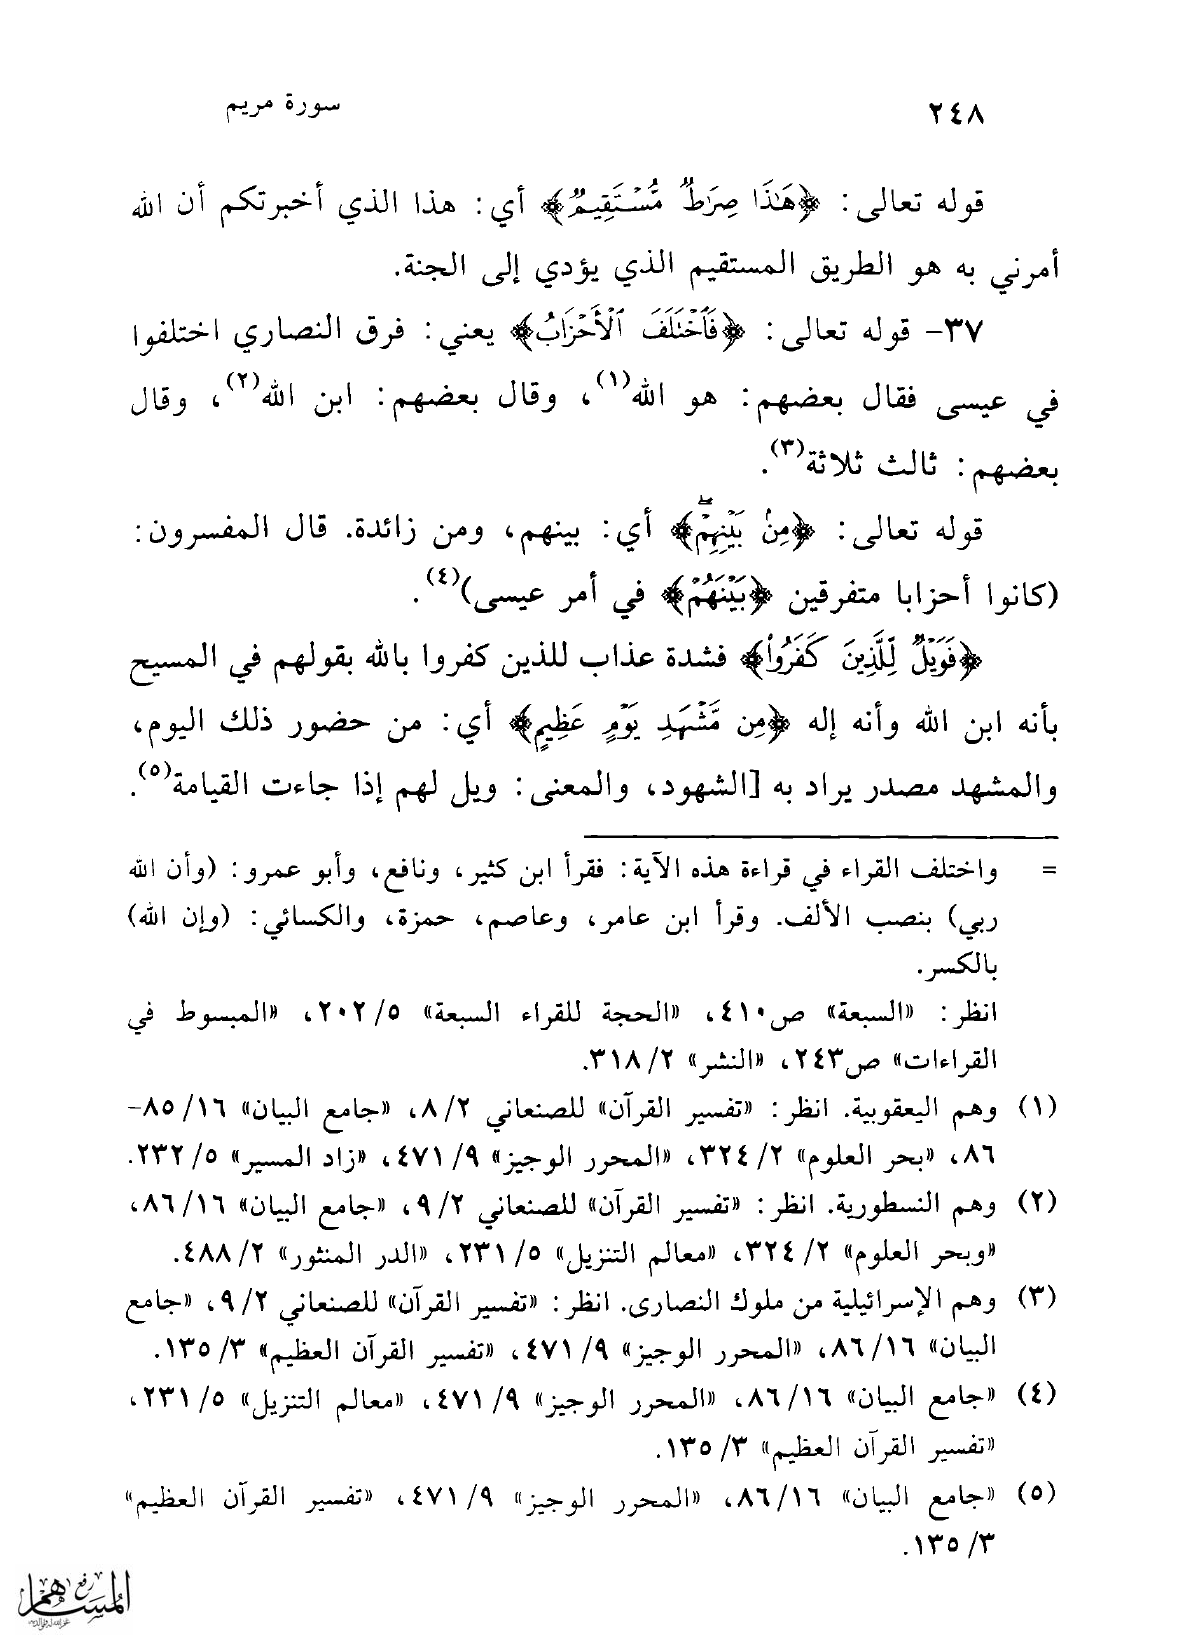 ٢٤٨
سورة مريم
قوله تعالى: ﴿هَٰذَا صِرَٰطٌ مُّسْتَقِيمٌ﴾ أي: هذا الذي أخبرتكم أن الله
أمرني به هو الطريق المستقيم الذي يؤدي إلى الجنة.
٣٧- قوله تعالى: ﴿فَٱخْتَلَفَ ٱلْأَحْزَابُ﴾ يعني: فرق النصاري اختلفوا
في عيسى فقال بعضهم: هو الله(١)، وقال بعضهم: ابن الله(٢)، وقال
بعضهم: ثالث ثلاثة(٣).
قوله تعالى: ﴿مِنۢ بَيْنِهِمْ ۖ﴾ أي: بينهم، ومن زائدة. قال المفسرون:
(كانوا أحزابا متفرقين ﴿بَيْنَهُمْ﴾ في أمر عيسى)(٤).
﴿فَوَيْلٌ لِّلَّذِينَ كَفَرُوا۟﴾ فشدة عذاب للذين كفروا بالله بقولهم في المسيح
بأنه ابن الله وأنه إله ﴿مِن مَّشْهَدِ يَوْمٍ عَظِيمٍ﴾ أي: من حضور ذلك اليوم،
والمشهد مصدر يراد به [الشهود، والمعنى: ويل لهم إذا جاءت القيامة(٥).
= واختلف القراء في قراءة هذه الآية: فقرأ ابن كثير، ونافع، وأبو عمرو: (وأن الله
ربي) بنصب الألف. وقرأ ابن عامر، وعاصم، حمزة، والكسائي: (وإن الله)
بالكسر.
انظر: «السبعة» ص٤١٠، «الحجة للقراء السبعة» ٥/ ٢٠٢، «المبسوط في
القراءات» ص٢٤٣، «النشر» ٢/ ٣١٨.
(١) وهم اليعقوبية. انظر: «تفسير القرآن» للصنعاني ٢/ ٨، «جامع البيان» ١٦/ ٨٥-
٨٦، «بحر العلوم» ٢/ ٣٢٤، «المحرر الوجيز» ٩/ ٤٧١، «زاد المسير» ٥/ ٢٣٢.
(٢) وهم النسطورية. انظر: «تفسير القرآن» للصنعاني ٢/ ٩، «جامع البيان» ١٦/ ٨٦،
«وبحر العلوم» ٢/ ٣٢٤، «معالم التنزيل» ٥/ ٢٣١، «الدر المنثور» ٢/ ٤٨٨.
(٣) وهم الإسرائيلية من ملوك النصارى. انظر: «تفسير القرآن» للصنعاني ٢/ ٩، «جامع
البيان» ١٦/ ٨٦، «المحرر الوجيز» ٩/ ٤٧١، «تفسير القرآن العظيم» ٣/ ١٣٥.
(٤) «جامع البيان» ١٦/ ٨٦، «المحرر الوجيز» ٩/ ٤٧١، «معالم التنزيل» ٥/ ٢٣١،
«تفسير القرآن العظيم» ٣/ ١٣٥.
(٥) «جامع البيان» ١٦/ ٨٦، «المحرر الوجيز» ٩/ ٤٧١، «تفسير القرآن العظيم»
٣/ ١٣٥.